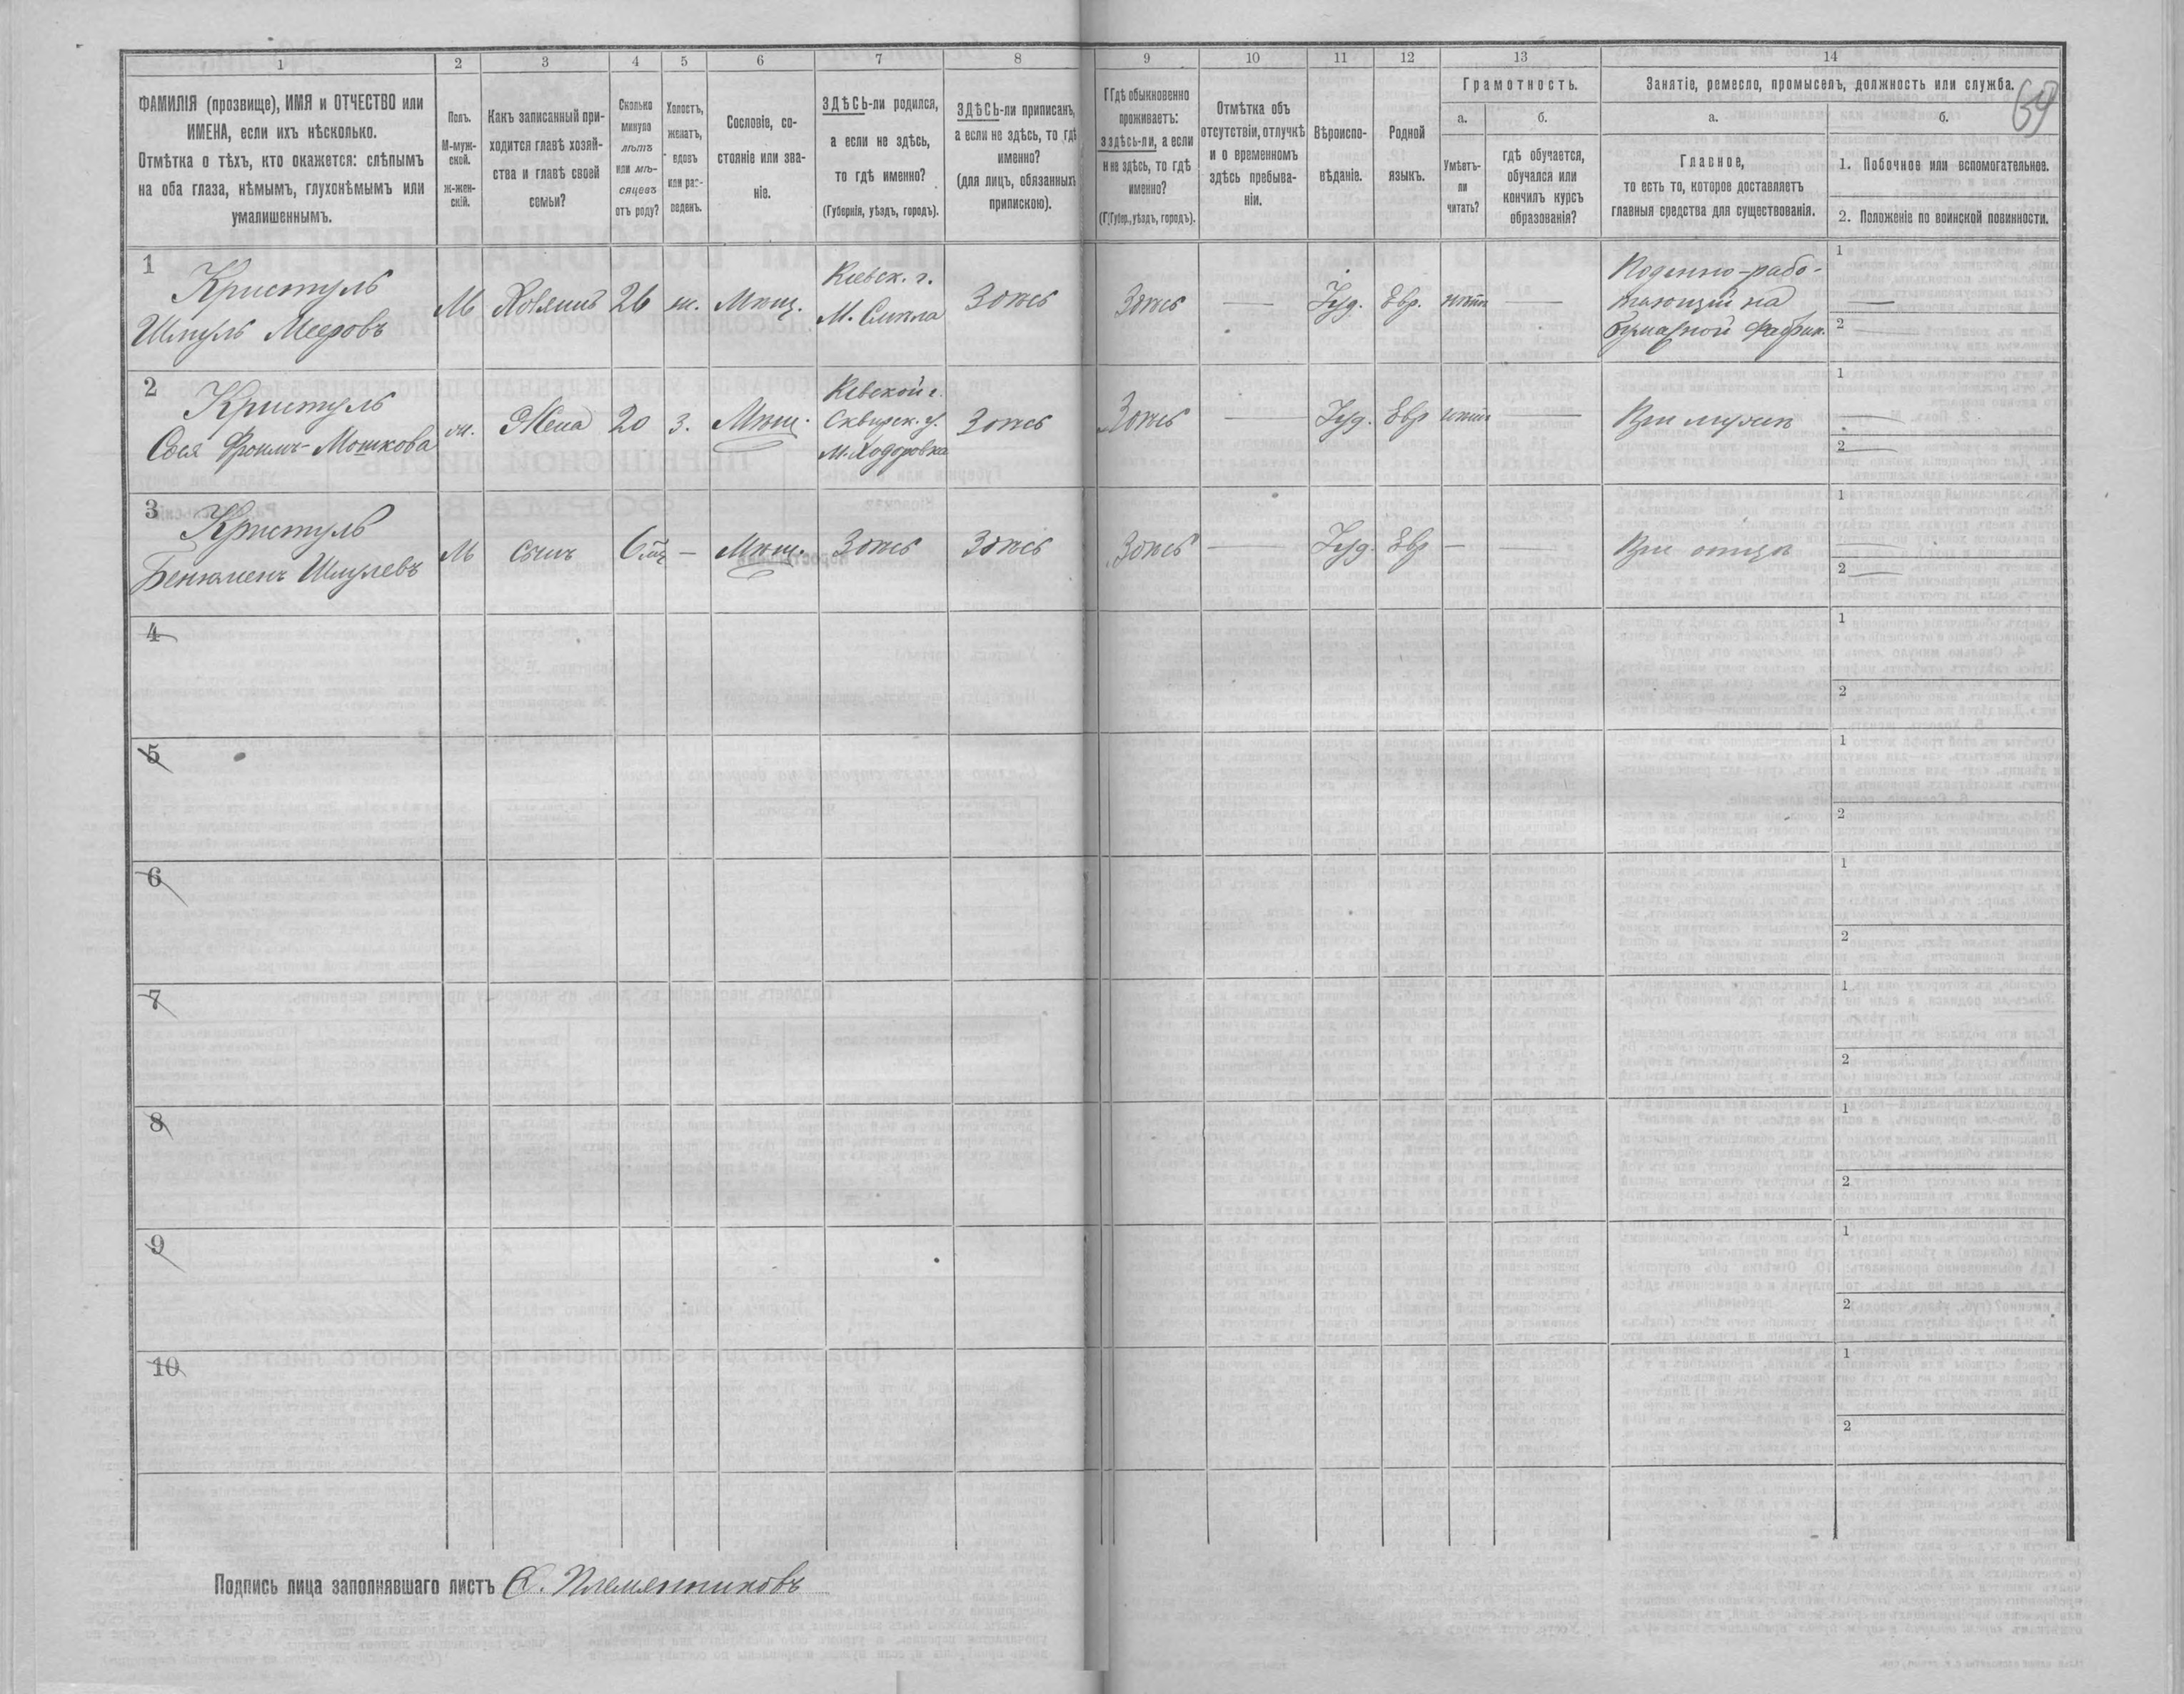 1 2 3 4 5 6 7 8 9 10 11 12 13 14
ФАМИЛІЯ (прозвище), ИМЯ и ОТЧЕСТВО или
ИМЕНА, если ихъ нѣсколько.
Отмѣтка о тѣхъ, кто окажется: слѣпымъ
на оба глаза, нѣмымъ, глухонѣмымъ или
умалишеннымъ.
Полъ.
М-муж-
ской.
ж-жен-
скій.
Какъ записанный при-
ходится главѣ хозяй-
ства и главѣ своей
семьи?
Сколько
минуло
лѣтъ
или мѣ-
сяцевъ
отъ роду?
Холостъ,
женатъ,
вдовъ
или раз-
веденъ.
Сословіе, со-
стояніе или зва-
ніе.
ЗДѢСЬ-ли родился,
а если не здѣсь,
то гдѣ именно?
(Губернія, уѣздъ, городъ).
ЗДѢСЬ-ли приписанъ,
а если не здѣсь, то гдѣ
именно?
(для лицъ, обязанныхъ
припискою).
Гдѣ обыкновенно
проживаетъ:
здѣсь-ли, а если
не здѣсь, то гдѣ
именно?
(Губер., уѣздъ, городъ).
Отмѣтка объ
отсутствіи, отлучкѣ
и о временномъ
здѣсь пребыва-
ніи.
Вѣроиспо-
вѣданіе.
Родной
языкъ.
Грамотность.
а.
Умѣетъ-
ли
читать?
б.
гдѣ обучается,
обучался или
кончилъ курсъ
образованія?
Занятіе, ремесло, промыселъ, должность или служба.
а.
Главное,
то есть то, которое доставляетъ
главныя средства для существованія.
б.
1. Побочное или вспомогательное.
2. Положеніе по воинской повинности.
1
Кристуль
Шмуль Мееровъ
М Хозяинъ 26 ж. Мѣщ.
Кіевск. г.
М.
Здѣсь Здѣсь — Іуд. Евр. нѣтъ —
Поденно-рабо-
тающій на
бумажной фабрик.
1 —
2 —
2
Кристуль
Фроимъ-Мошкова
ж. Жена 20 з. Мѣщ.
Кіевской г.
Сквирск. у.
М. Ходоровка
Здѣсь Здѣсь — Іуд. Евр нѣтъ —
При мужѣ
1 —
2 —
3
Кристуль
Бенюменъ Шмулевъ
М сынъ 6 мц — Мѣщ. Здѣсь Здѣсь Здѣсь — Іуд. Евр — —
При отцѣ
1 —
2 —
4
1
2
5
1
2
6
1
2
7
1
2
8
1
2
9
1
2
10
1
2
Подпись лица заполнявшаго листъ Племянниковъ